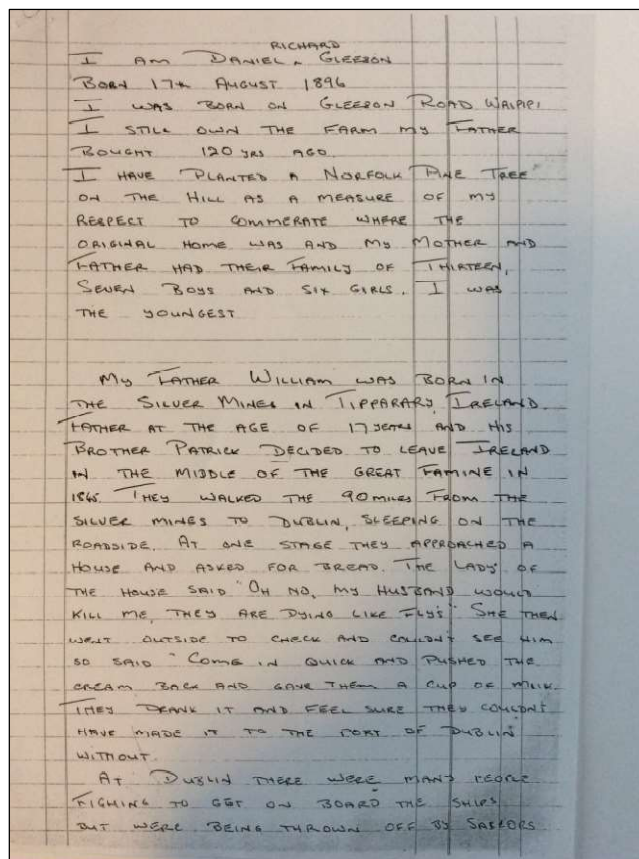 RICHARD
I AM DANIEL ^ GLEESON
BORN 17th AUGUST 1896
I WAS BORN ON GLEESON ROAD WAIPIPI
I STILL OWN THE FARM MY FATHER
BOUGHT 120 YRS AGO.
I HAVE PLANTED A NORFOLK PINE TREE
ON THE HILL AS A MEASURE OF MY
RESPECT TO COMMERATE WHERE THE
ORIGINAL HOME WAS AND MY MOTHER AND
FATHER HAD THEIR FAMILY OF THIRTEEN,
SEVEN BOYS AND SIX GIRLS. I WAS
THE YOUNGEST
MY FATHER WILLIAM WAS BORN IN
THE SILVER MINES IN TIPPARARY, IRELAND.
FATHER AT THE AGE OF 17 YEARS AND HIS
BROTHER PATRICK DECIDED TO LEAVE IRELAND
IN THE MIDDLE OF THE GREAT FAMINE IN
THEY WALKED THE 90 MILES FROM THE
SILVER MINES TO DUBLIN, SLEEPING ON THE
ROADSIDE. AT ONE STAGE THEY APPROACHED A
HOUSE AND ASKED FOR BREAD. THE LADY OF
THE HOUSE SAID "OH NO, MY HUSBAND WOULD
KILL ME, THEY ARE DYING LIKE FLY'S" SHE THEN
WENT OUTSIDE TO CHECK AND COULDN'T SEE HIM
SO SAID "COME IN QUICK AND PUSHED THE
CREAM BACK AND GAVE THEM A CUP OF MILK.
THEY DRANK IT AND FEEL SURE THEY COULDN'T
HAVE MADE IT TO THE PORT OF DUBLIN
WITHOUT.
AT DUBLIN THERE WERE MANY PEOPLE
FIGHING TO GET ON BOARD THE SHIPS
BUT WERE BEING THROWN OFF BY SAILORS